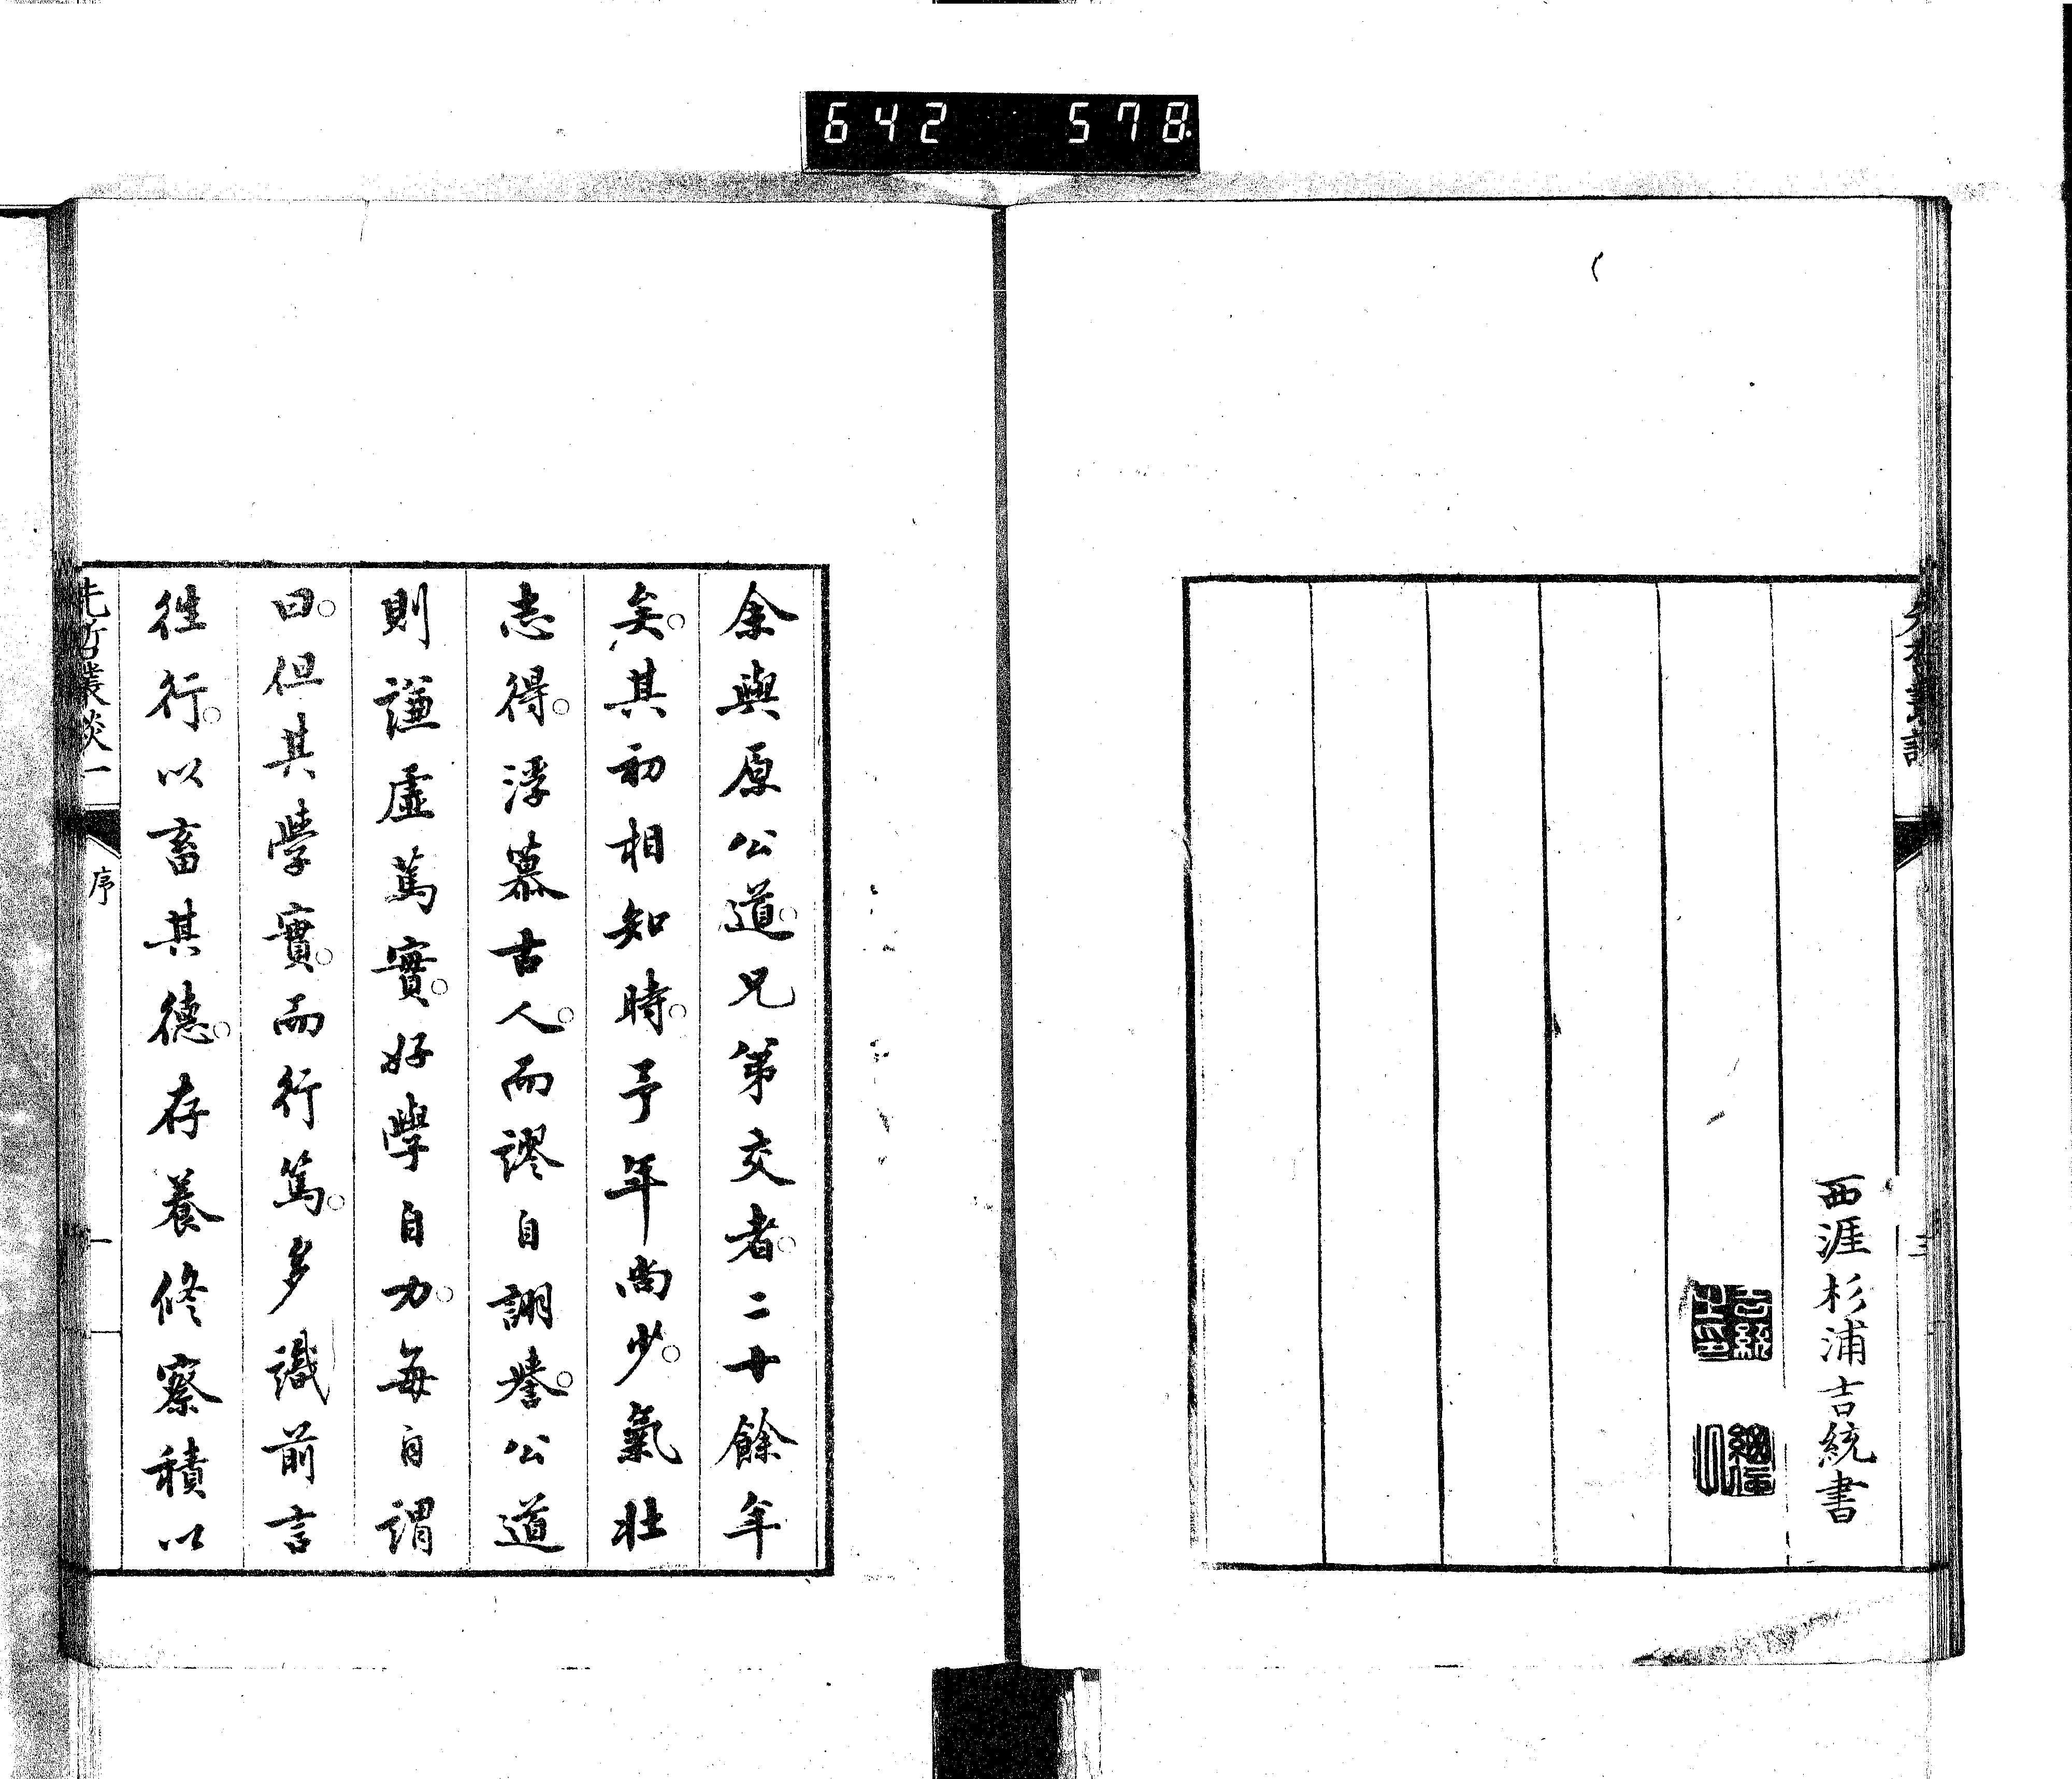 642 578
西涯杉浦吉統書
余與原公道。兄弟交者。二十餘年
矣。其初相知時。予年尚少。氣壯
志得。浮慕古人。而謬自詡譽。公道
則謙虛篤實。好學自力。每自謂
曰。但其學實。而行篤。多識前言
往行。以畜其德。存養修察積以
先哲叢談一
序
一